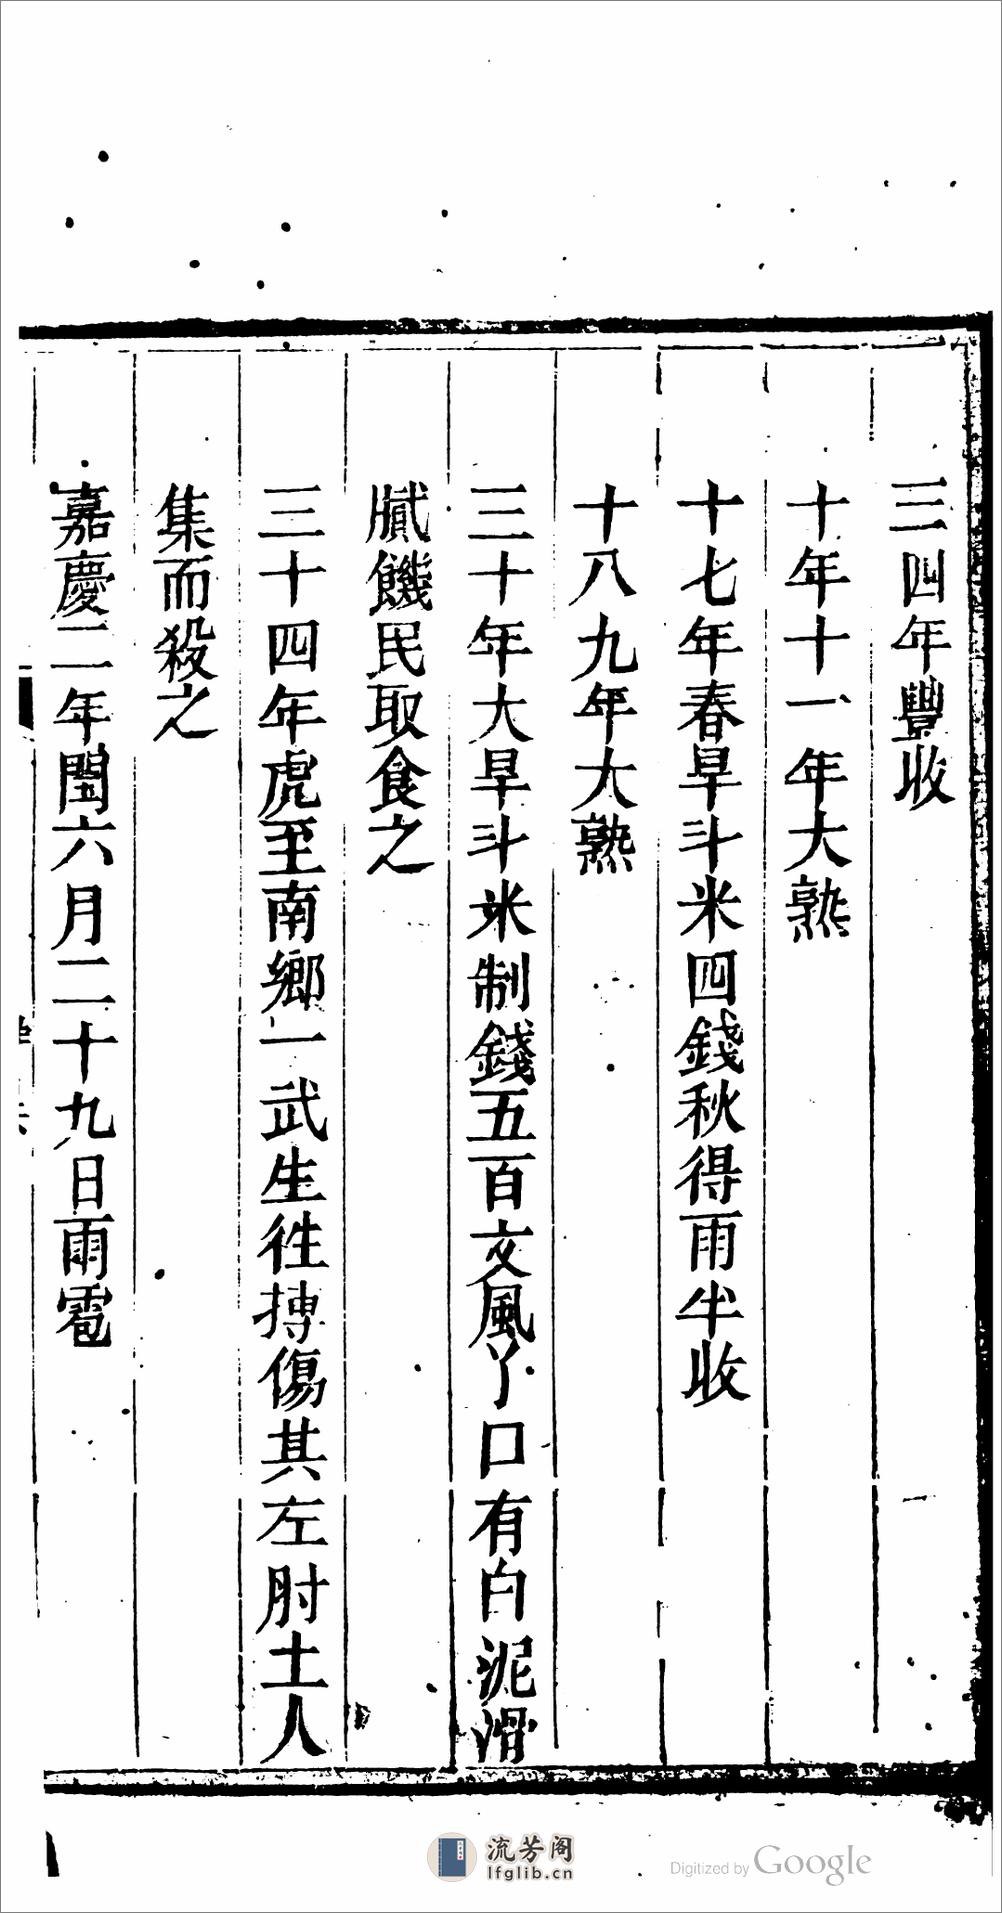 三四年豐收
十年十一年大熟
十七年春旱斗米四錢秋得雨半收
十八九年大熟
三十年大旱斗米制錢五百文風丫口有白泥滑
膩饑民取食之
三十四年虎至南鄉一武生徃搏傷其左肘土人
集而殺之
嘉慶二年閏六月二十九日雨雹
流芳阁
lfglib.cn
Digitized by Google